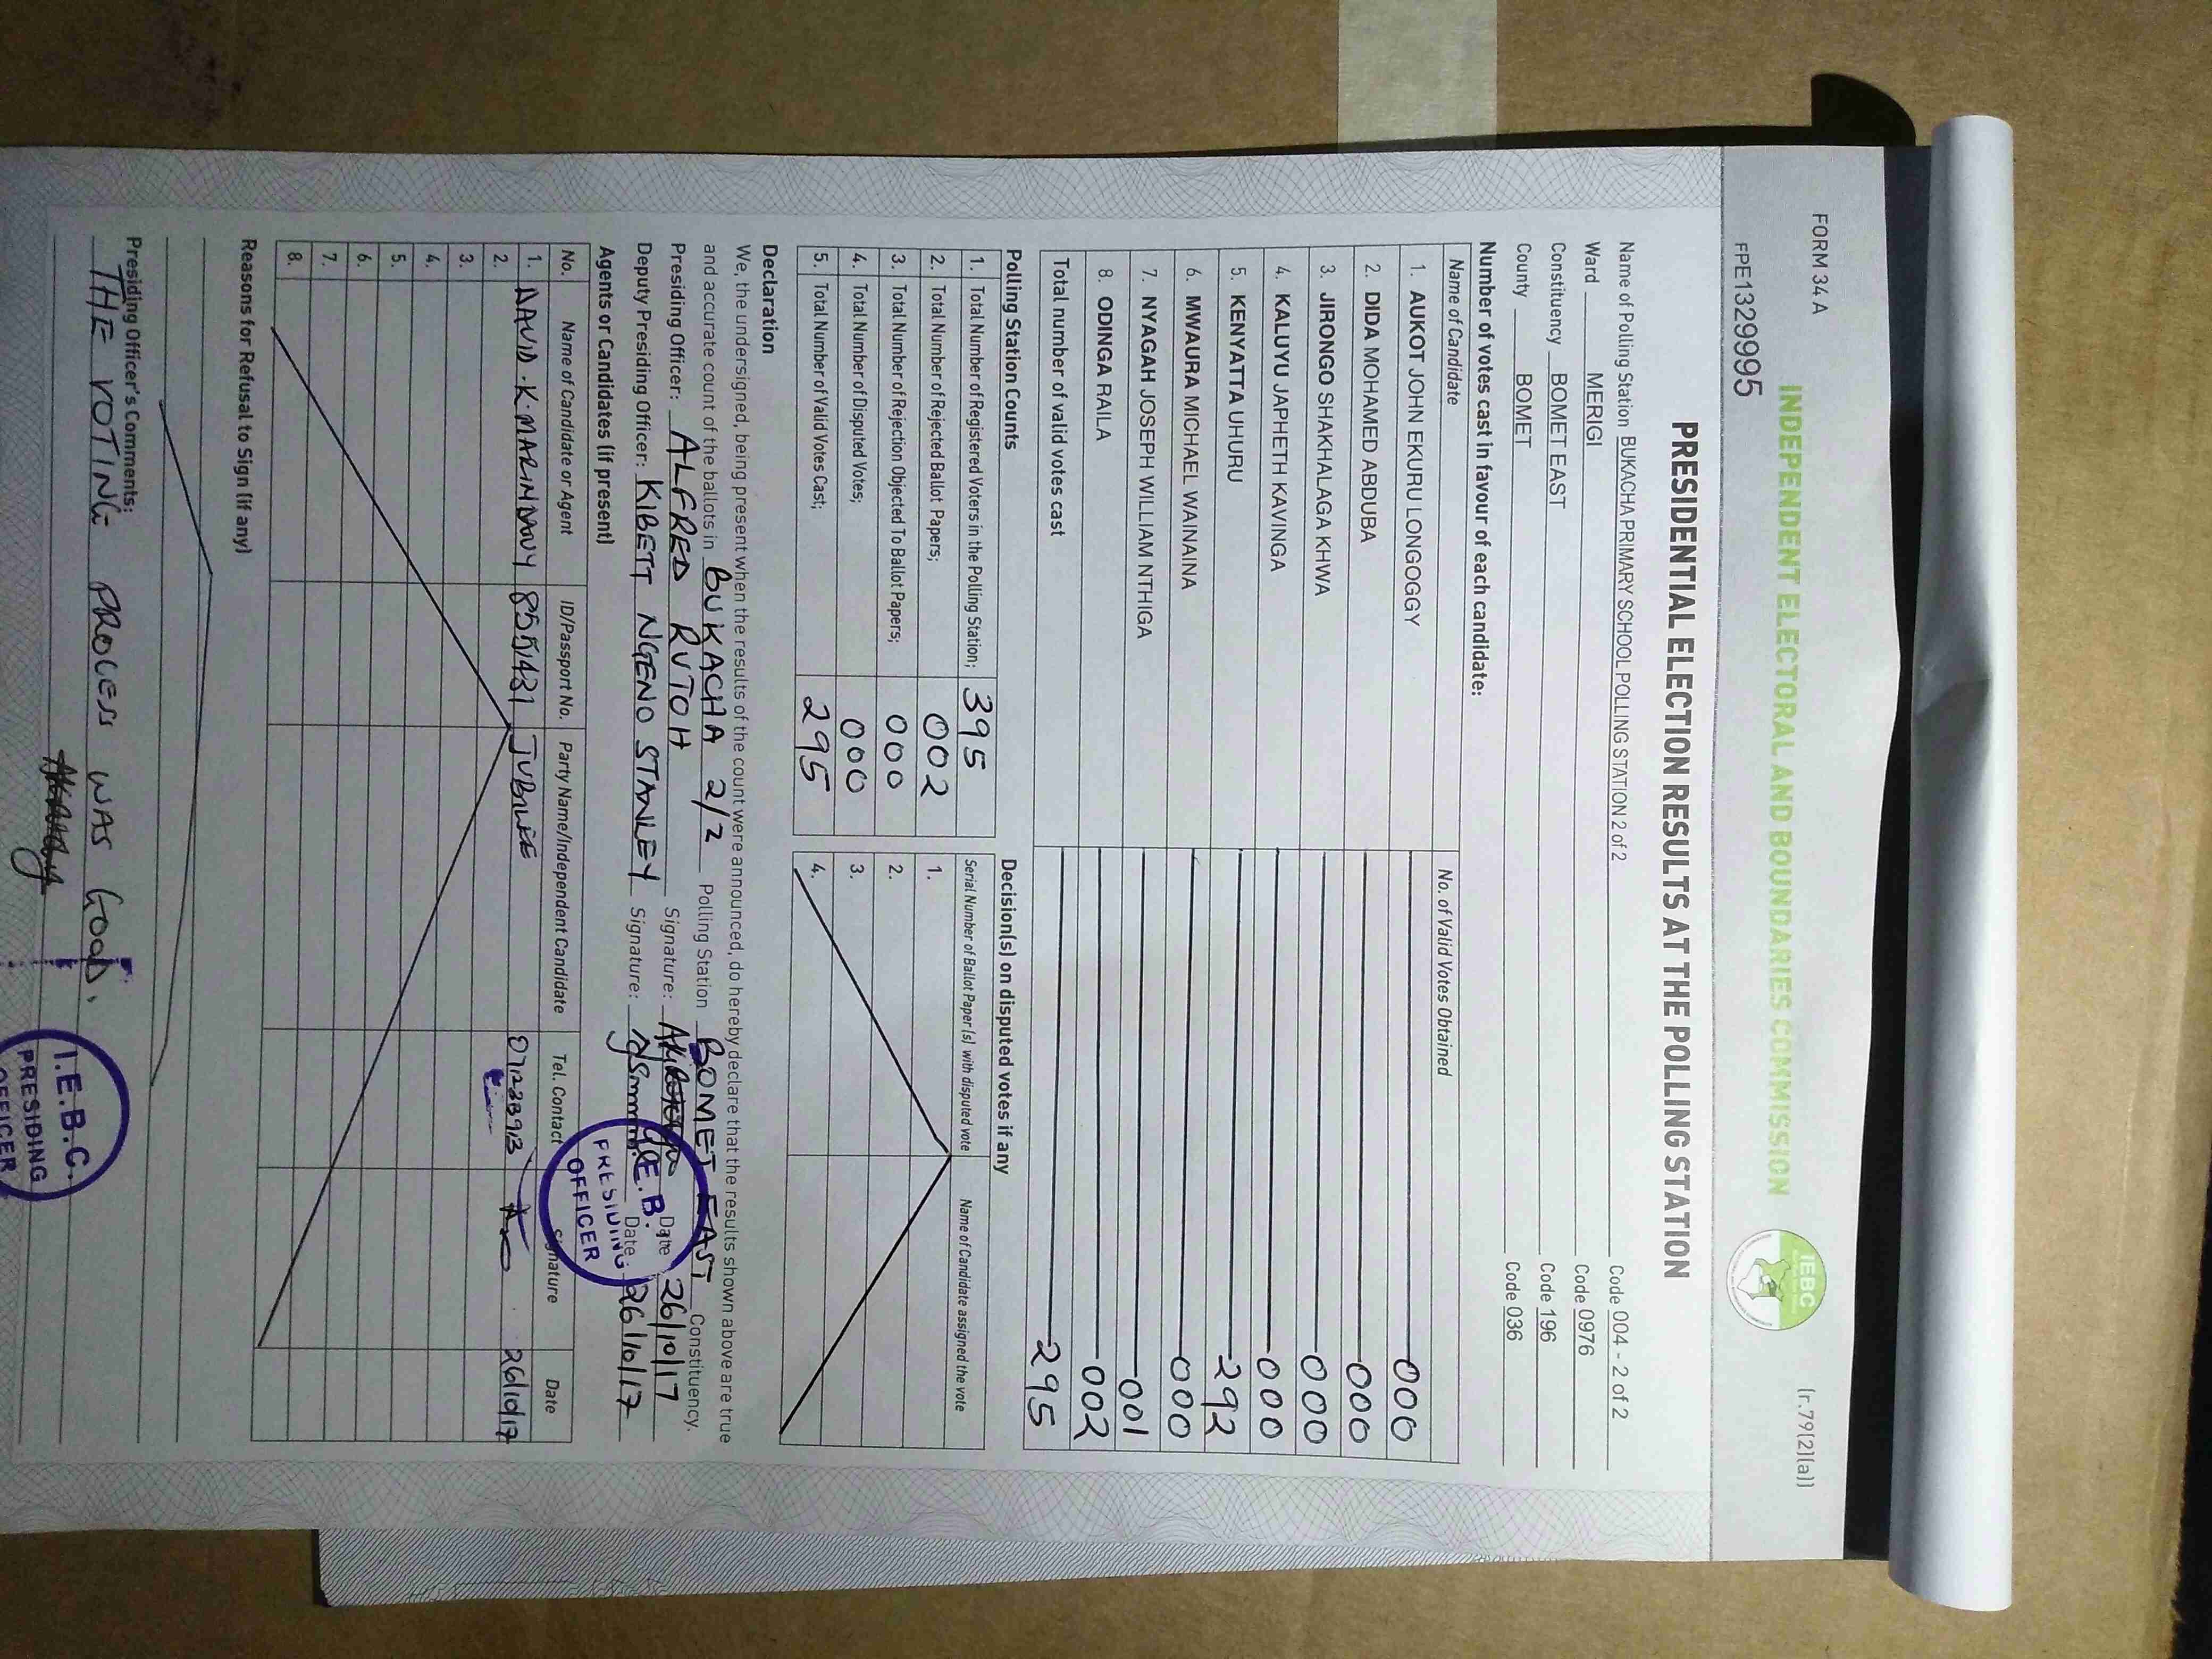 FORM 34 A
(r.79(2)(a))
INDEPENDENT ELECTORAL AND BOUNDARIES COMMISSION
IEBC
FPE1329995
PRESIDENTIAL ELECTION RESULTS AT THE POLLING STATION
Name of Polling Station BUKACHA PRIMARY SCHOOL POLLING STATION 2 of 2 Code 004 - 2 of 2
Ward MERIGI Code 0976
Constituency BOMET EAST Code 196
County BOMET Code 036
Number of votes cast in favour of each candidate:
Name of Candidate No. of Valid Votes Obtained
1. AUKOT JOHN EKURU LONGOGGY 000
2. DIDA MOHAMED ABDUBA 000
3. JIRONGO SHAKHALAGA KHWA 000
4. KALUYU JAPHETH KAVINGA 000
5. KENYATTA UHURU 292
6. MWAURA MICHAEL WAINAINA 000
7. NYAGAH JOSEPH WILLIAM NTHIGA 001
8. ODINGA RAILA 002
Total number of valid votes cast 295
Polling Station Counts
1. Total Number of Registered Voters in the Polling Station; 395
2. Total Number of Rejected Ballot Papers; 002
3. Total Number of Rejection Objected To Ballot Papers; 000
4. Total Number of Disputed Votes; 000
5. Total Number of Valid Votes Cast; 295
Decision(s) on disputed votes if any
Serial Number of Ballot Paper (s) with disputed vote Name of Candidate assigned the vote
1.
2.
3.
4.
Declaration
We, the undersigned, being present when the results of the count were announced, do hereby declare that the results shown above are true
and accurate count of the ballots in BUKACHA 2/2 Polling Station BOMET EAST Constituency.
Presiding Officer: ALFRED RUTOH Signature: Date 26/10/17
Deputy Presiding Officer: KIBETT NGENO STANLEY Signature: Date: 26/10/17
PRESIDING
OFFICER
Agents or Candidates (if present)
No. Name of Candidate or Agent ID/Passport No. Party Name/Independent Candidate Tel. Contact Signature Date
1. DAVID.K. 8551431 JUBILEE 26/10/17
2.
3.
4.
5.
6.
7.
8.
Reasons for Refusal to Sign (if any)
Presiding Officer's Comments:
THE VOTING PROCESS WAS GOOD.
I.E.B.C.
PRESIDING
OFFICER